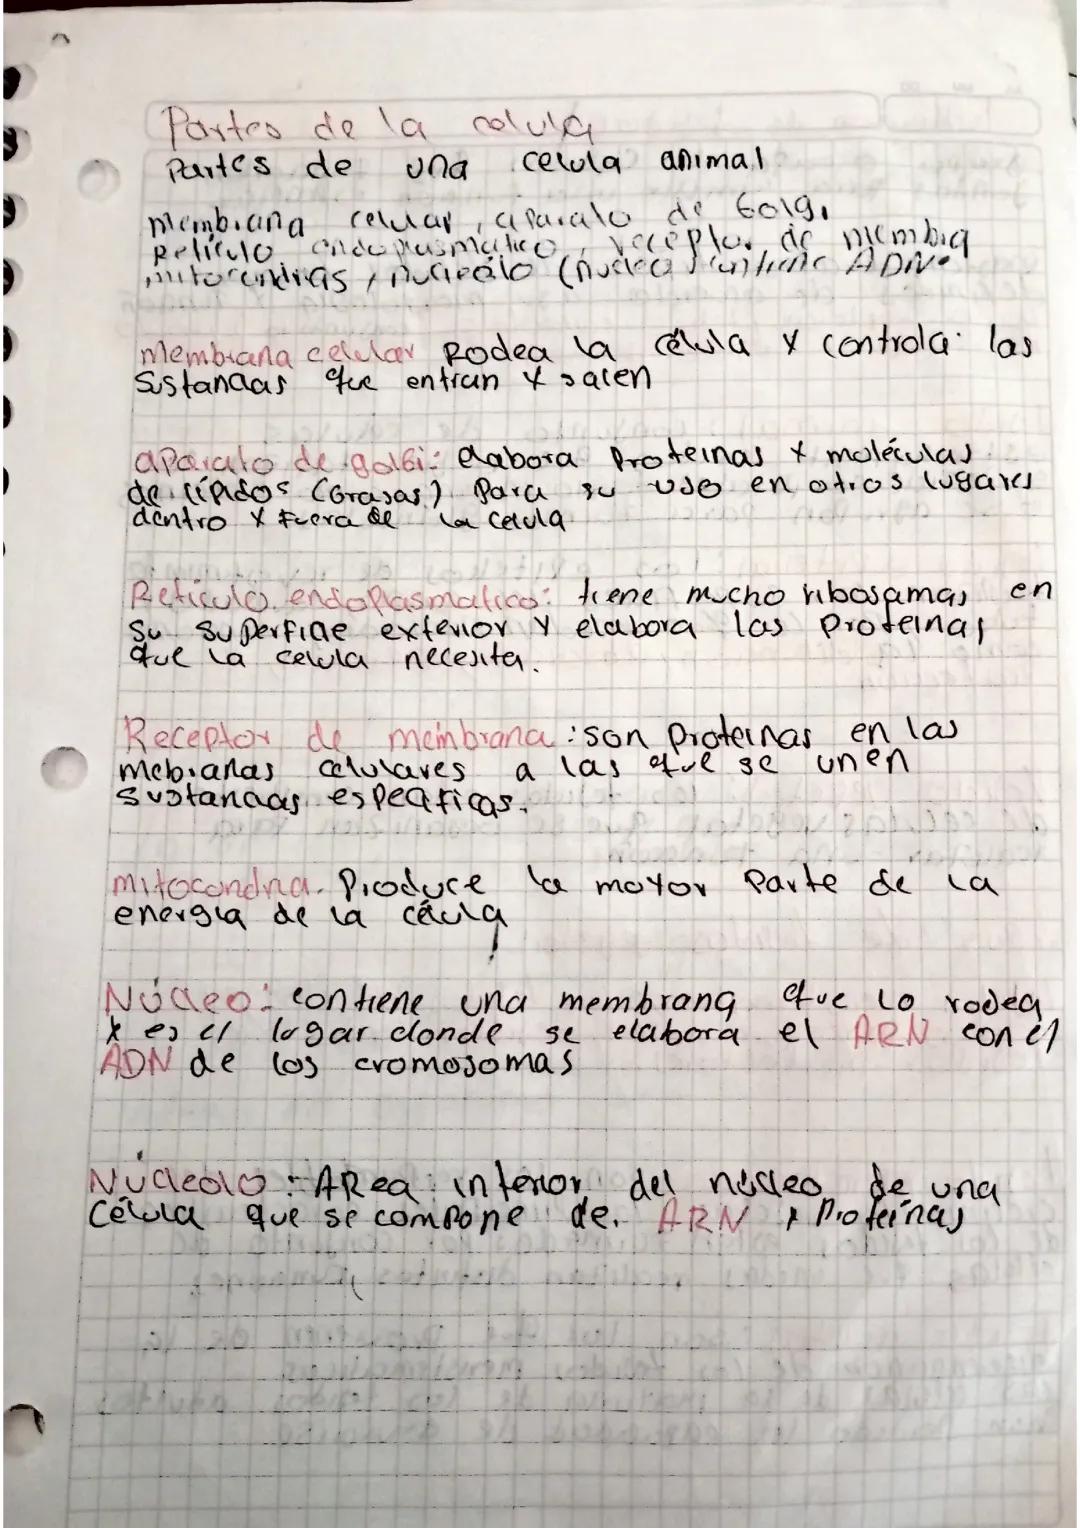 Partes de la celula
Partes de una celula animal
membrana celular, aparato de Golgi
Reticulo endoplasmático, receptor de membra
mitocondrias, nucleolo (nucleo) contiene ADN.
membrana celular Rodea la célula y controla las
sustancias que entran y salen
aparato de golgi: elabora Proteinas y moléculas
de lípidos (Grasas) para su uso en otros lugares
dentro y fuera de la celula
Reticulo endoplasmatico: tiene mucho ribosamas en
su superficie exterior y elabora las Proteinas
que la celula necesita.
Receptor de membrana: son proteinas en las
mebranas celulares a las que se unen
sustancias especificas.
mitocondria. Produce la mayor Parte de la
energia de la célula
Núcleo: contiene una membrana que lo rodea
y es el lugar donde se elabora el ARN con el
ADN de los cromosomas
Núcleolo: ARea interior del nucleo de una
Célula que se compone de. ARN y Proteinas